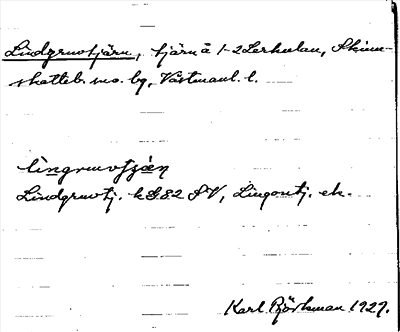 Lindgruvtjärn, tjärn å 1-2 Lerkulan, Skinn-
skatteb. sn o. bg, Västmanl. l.
lìngruvtjæ̀n
Lindgruvtj. k G.82 SV, Lingontj. ek.
Karl Björkman 1929.